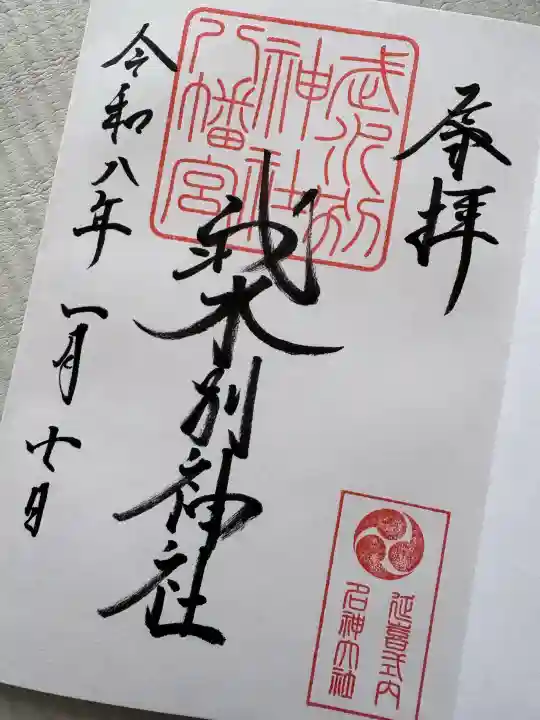 奉拝
武水別
神社
八幡宮
武水別神社
令和八年 一月十日
延喜式内
名神大社